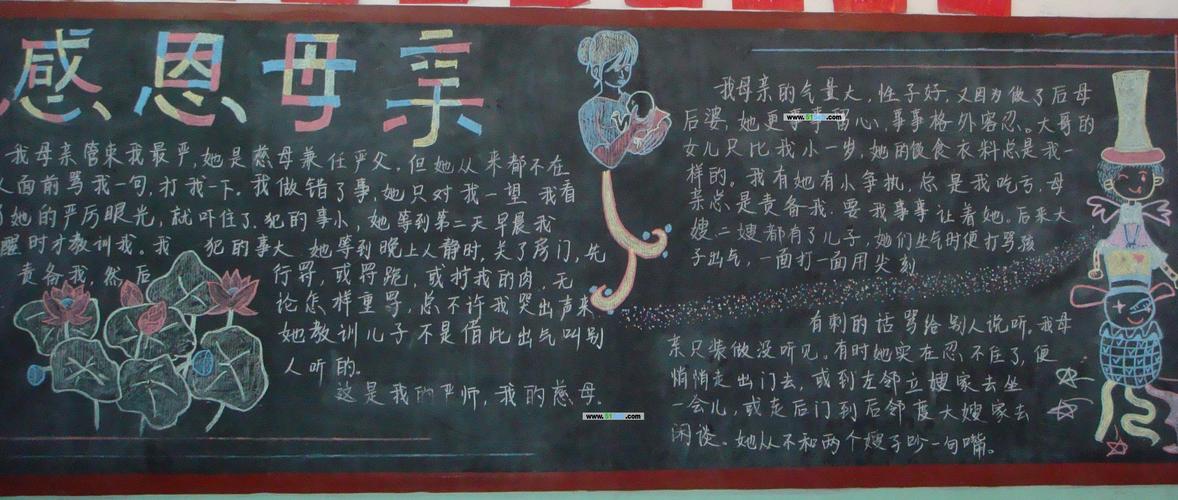 感恩母亲
我母亲管束我最严,她是慈母兼任严父。但她从来都不在
人面前骂我一句,打我一下。我做错了事,她只对我一望 我看
了她的严厉眼光,就吓住了.犯的事小,她等到第二天早晨我
醒时才教训我。我 犯的事大 她等到晚上人静时,关了房门,先
责备我,然后
行罚,或罚跪,或拧我的肉,无
论怎样重罚,总不许我哭出声来
她教训儿子不是借此出气叫别
人听的。
这是我的严师,我的慈母.
我母亲的气量大,性子好,又因为做了后母
后婆,她更事事留心,事事格外容忍。大哥的
女儿只比我小一岁,她的饮食衣料总是我一
样的。我有她有小争执,总是我吃亏,母
亲总是责备我.要我事事让着她。后来大
嫂二嫂都有了儿子,她们生气时便打骂孩
子出气,一面打一面用尖刻
有刺的话骂给别人说听。我母
亲只装做没听见。有时她实在忍不住了,便
悄悄走出门去,或到左邻立嫂家去坐
一会儿,或走后门到后邻度大嫂家去
闲谈。她从不和两个嫂子吵一句嘴。